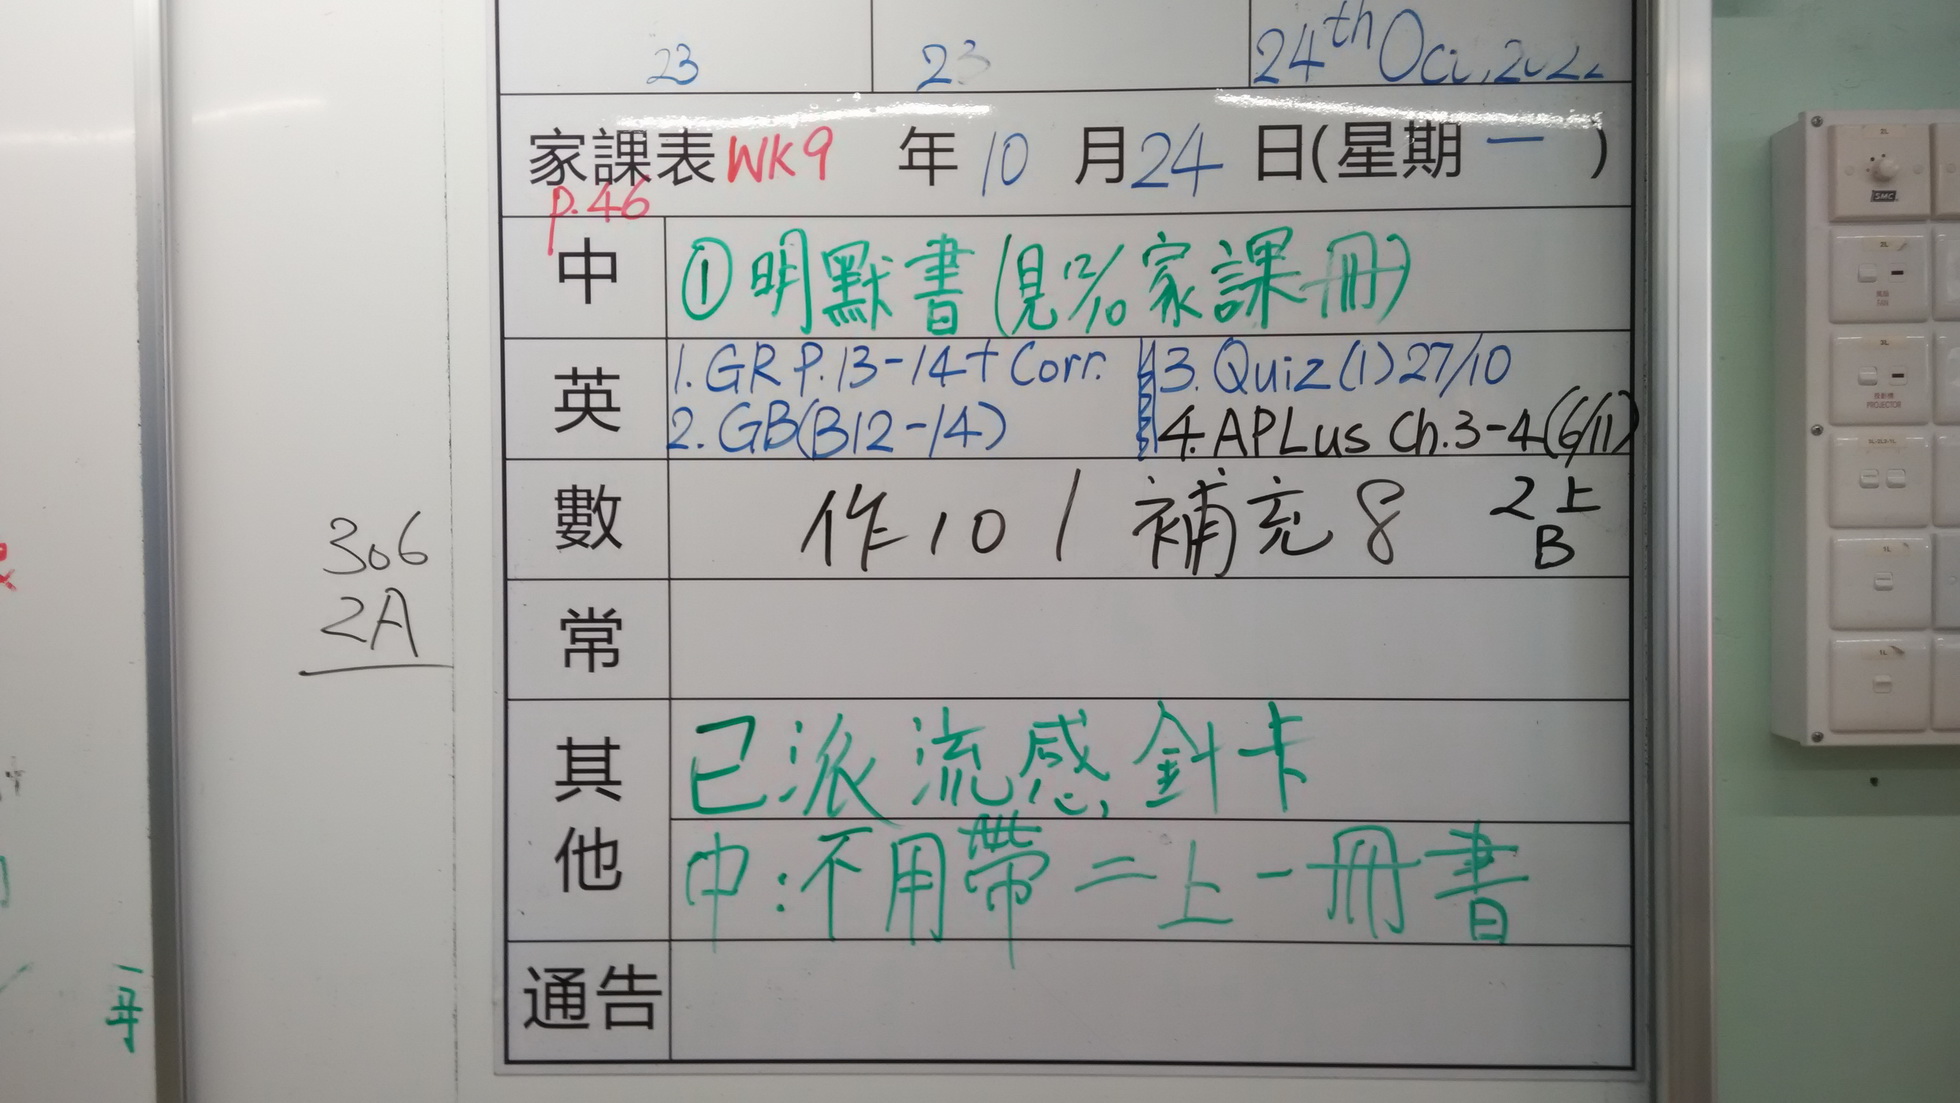 23 23 24th Oct, 2022
家課表 WK9 年 10 月 24 日(星期 一 )
P.46
中 ①明默書(見12/10家課冊)
英 1. GR P.13-14 + Corr. 3. Quiz (1) 27/10
2. GB(B12-14) 4. APLus Ch.3-4(6/11)
數 作10 / 補充8 2上B
常
其他 已派流感針卡
中:不用帶二上一冊書
通告
306
2A
SMC
FAN
PROJECTOR